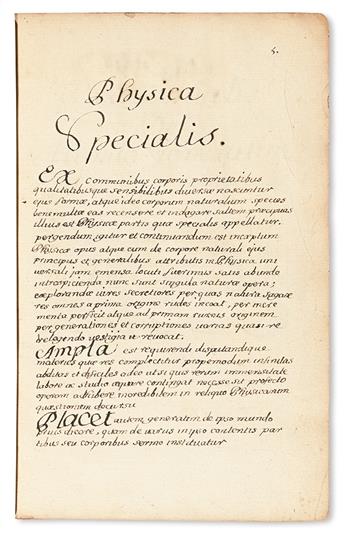 5.
Physica
Specialis.
Ex communibus corporis proprietatibus
qualitatibusque sensibilibus diversæ nascuntur
ejus formæ, atque ideo corporum naturalium species
benemultæ eas recensere et indagare saltem præcipuas
illius est Physicæ partis quæ specialis appellatur.
pergendum igitur et continuandum est inceptum
Physicæ opus atque cum de corpore naturali ejus
principiis et generalibus attributis in Physica uni
versali jam emensa locuti fuerimus satis abunde
introspicienda nunc sunt singula naturæ opera;
explorandæ viares secretiores per quas natura singulas
res omnes a primi originis rudes incoat, per incre
menta perficit atque ad primam rursus originem
per generationes et corruptiones varias quasi re
velegendo vestigia revocat.
Ampla est requirendi disputandique
materies quæ res complectitur propemodum infinitas
abditas et dificiles adeo ut si quis rerum immensitate
labore ac studio æquare contingat necesse sit profecto
operam adhibere incredibilem in reliquo Physicarum
quæstionum decursu
Placet autem generatim de ipso mundo
prius dicere, quam de variis in ipso contentis par
tibus seu corporibus sermo instituatur